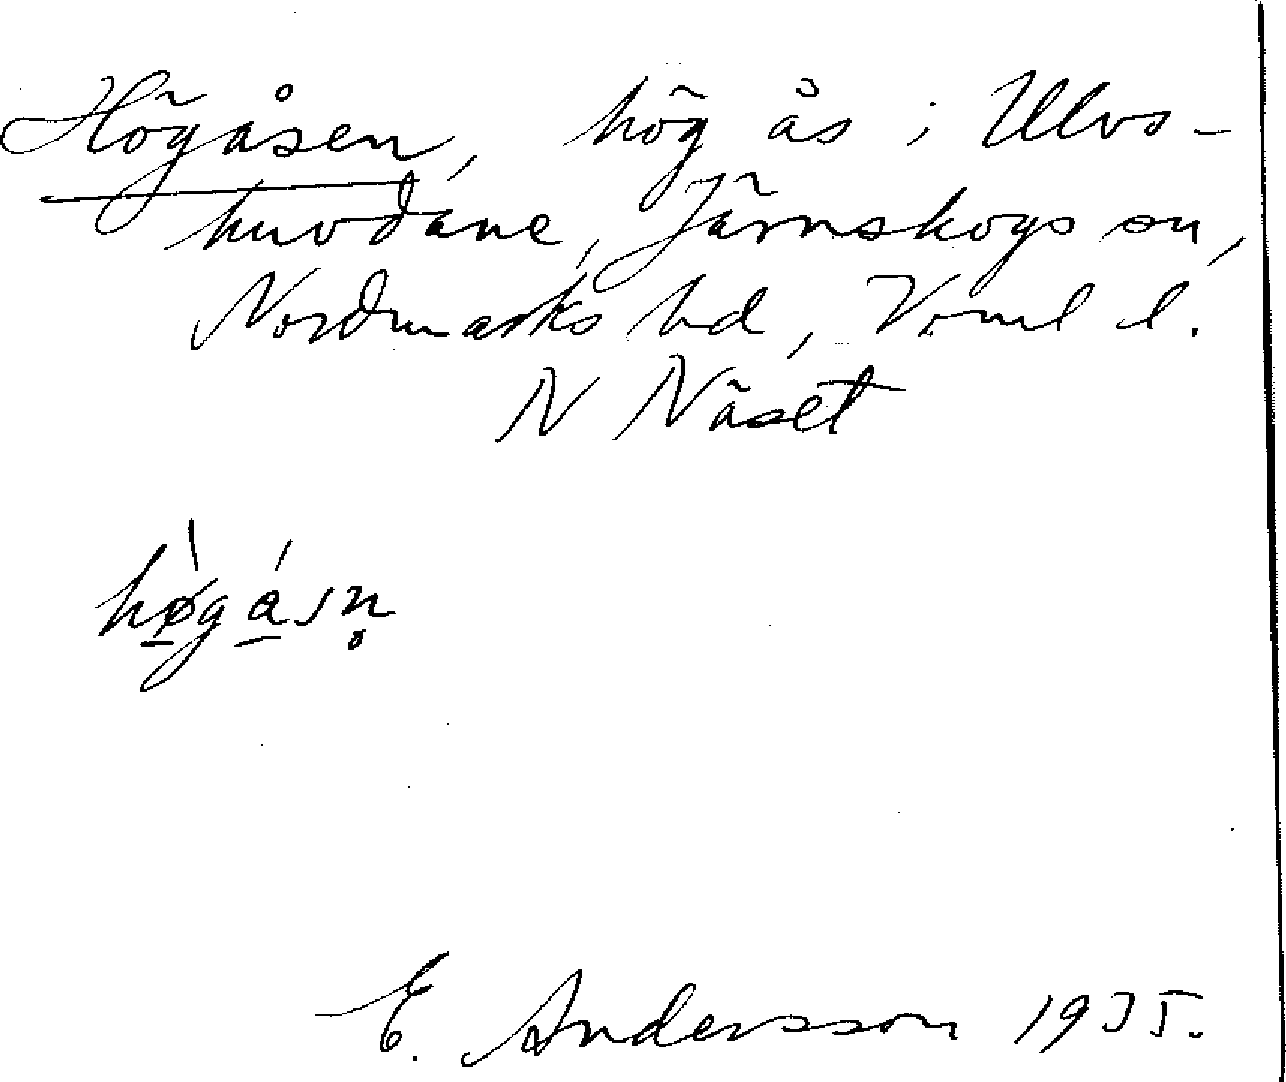 Högåsen, hög ås i Ulvs-
huvdane, Järnskogs sn,
Nordmarks hd, Vrml l.
N Näset
hø̠ga̠sn̥
E. Andersson 1935.